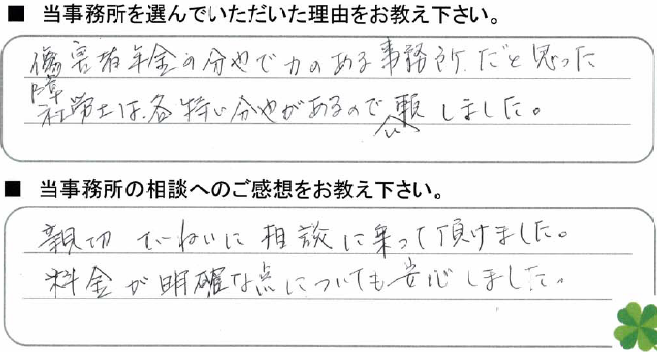 ■ 当事務所を選んでいただいた理由をお教え下さい。
傷害者年金の分也で力のある事務所だと思った
障
社労士は、各特い分也があるので願しました。
い
■ 当事務所の相談へのご感想をお教え下さい。
親切 ていねいに相談に乗って頂けました。
料金が明確な点についても安心しました。